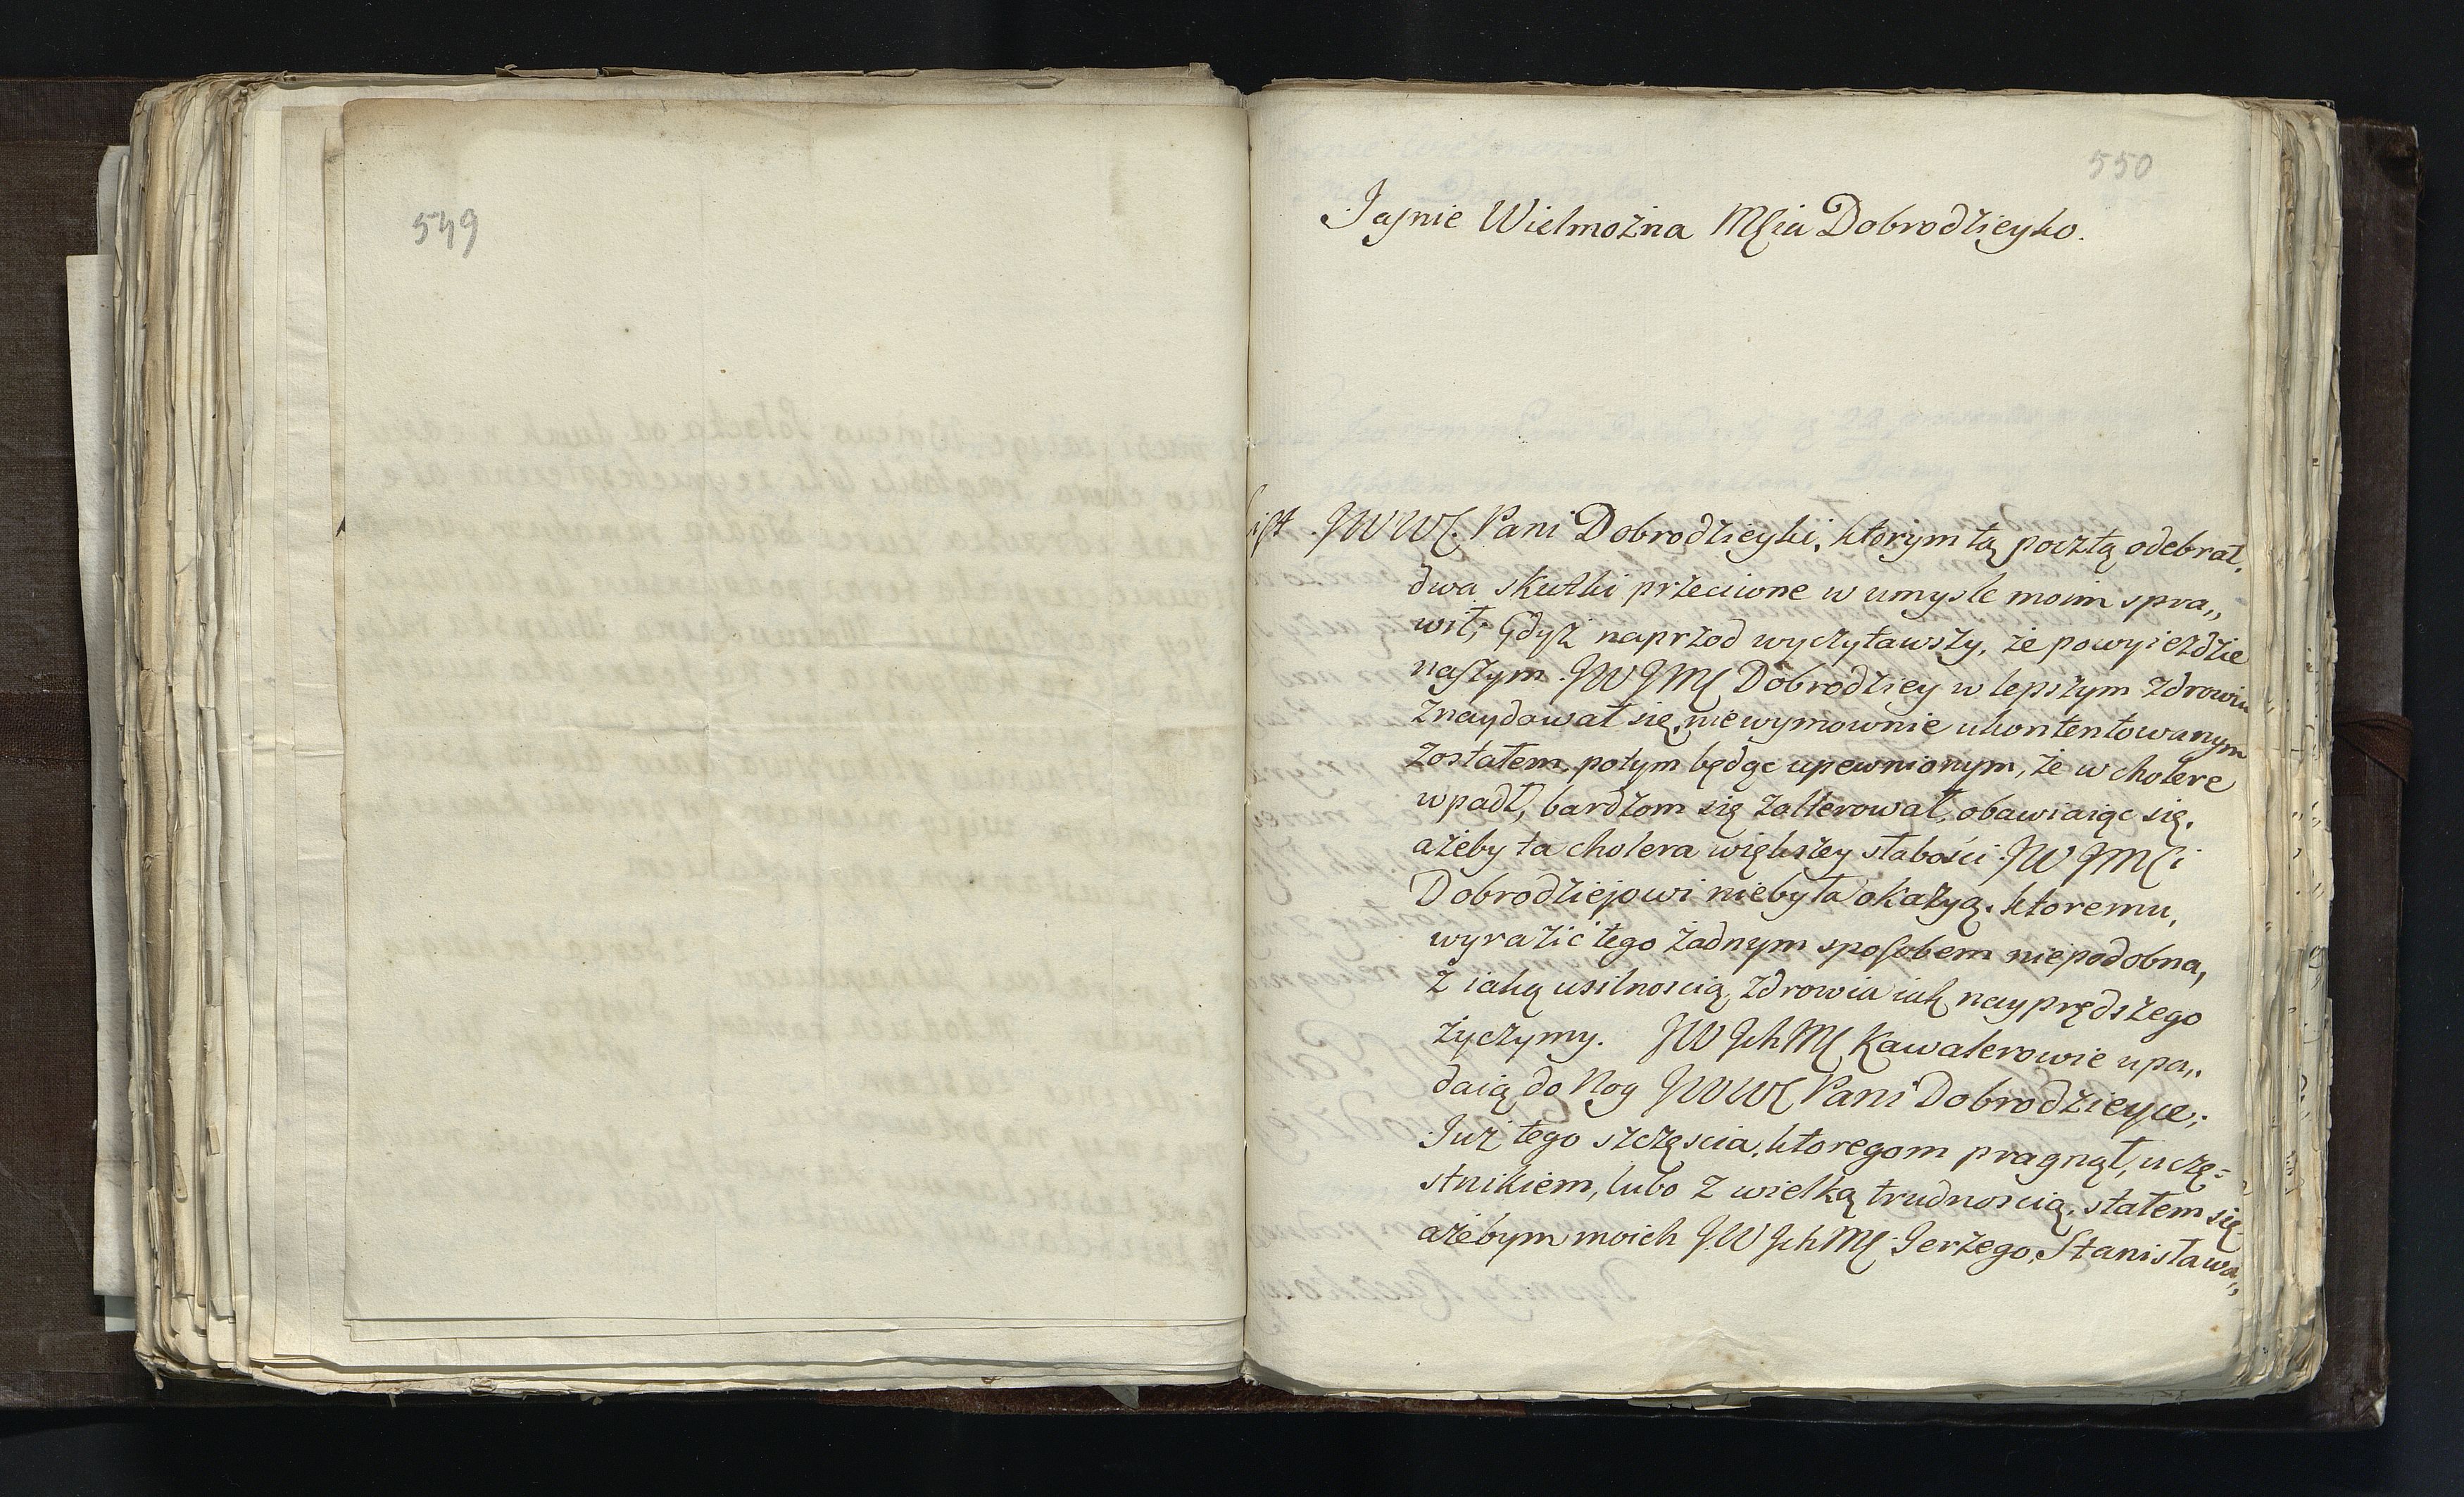 549
550
Jaśnie Wielmożna Mścia Dobrodzieyko.
List JWWć. Pani Dobrodzieyki, ktorym tą pocztą odebrał,
dwa skutki przeciwne w umysle moim spra„
wił; Gdyż naprzod wyczytawszy, że powyieździe
naszym JWJMć Dobrodziey w lepszym zdrowiu
znaydował się, niewymownie ukontentowanym
zostałem, potym będąc upewnionym, że w cholerę
wpadł, bardzom się zalterował, obawiaiąc się,
ażeby ta cholera większey słabości JWJMći
Dobrodziejowi niebyła okazyą, ktoremu,
wyrazić tego żadnym sposobem niepodobna,
z iaką usilnoscią, zdrowia iak nayprędszego
życzymy. JWJchMć Kawalerowie upa„
daią do Nog JWWć Pani Dobrodzieyce;
Już tego szczęscia, ktoregom pragnął, uczę=
stnikiem, lubo z wielką trudnoscią, stałem się
ażebym moich JWJchMć Jerzego, Stanisława„